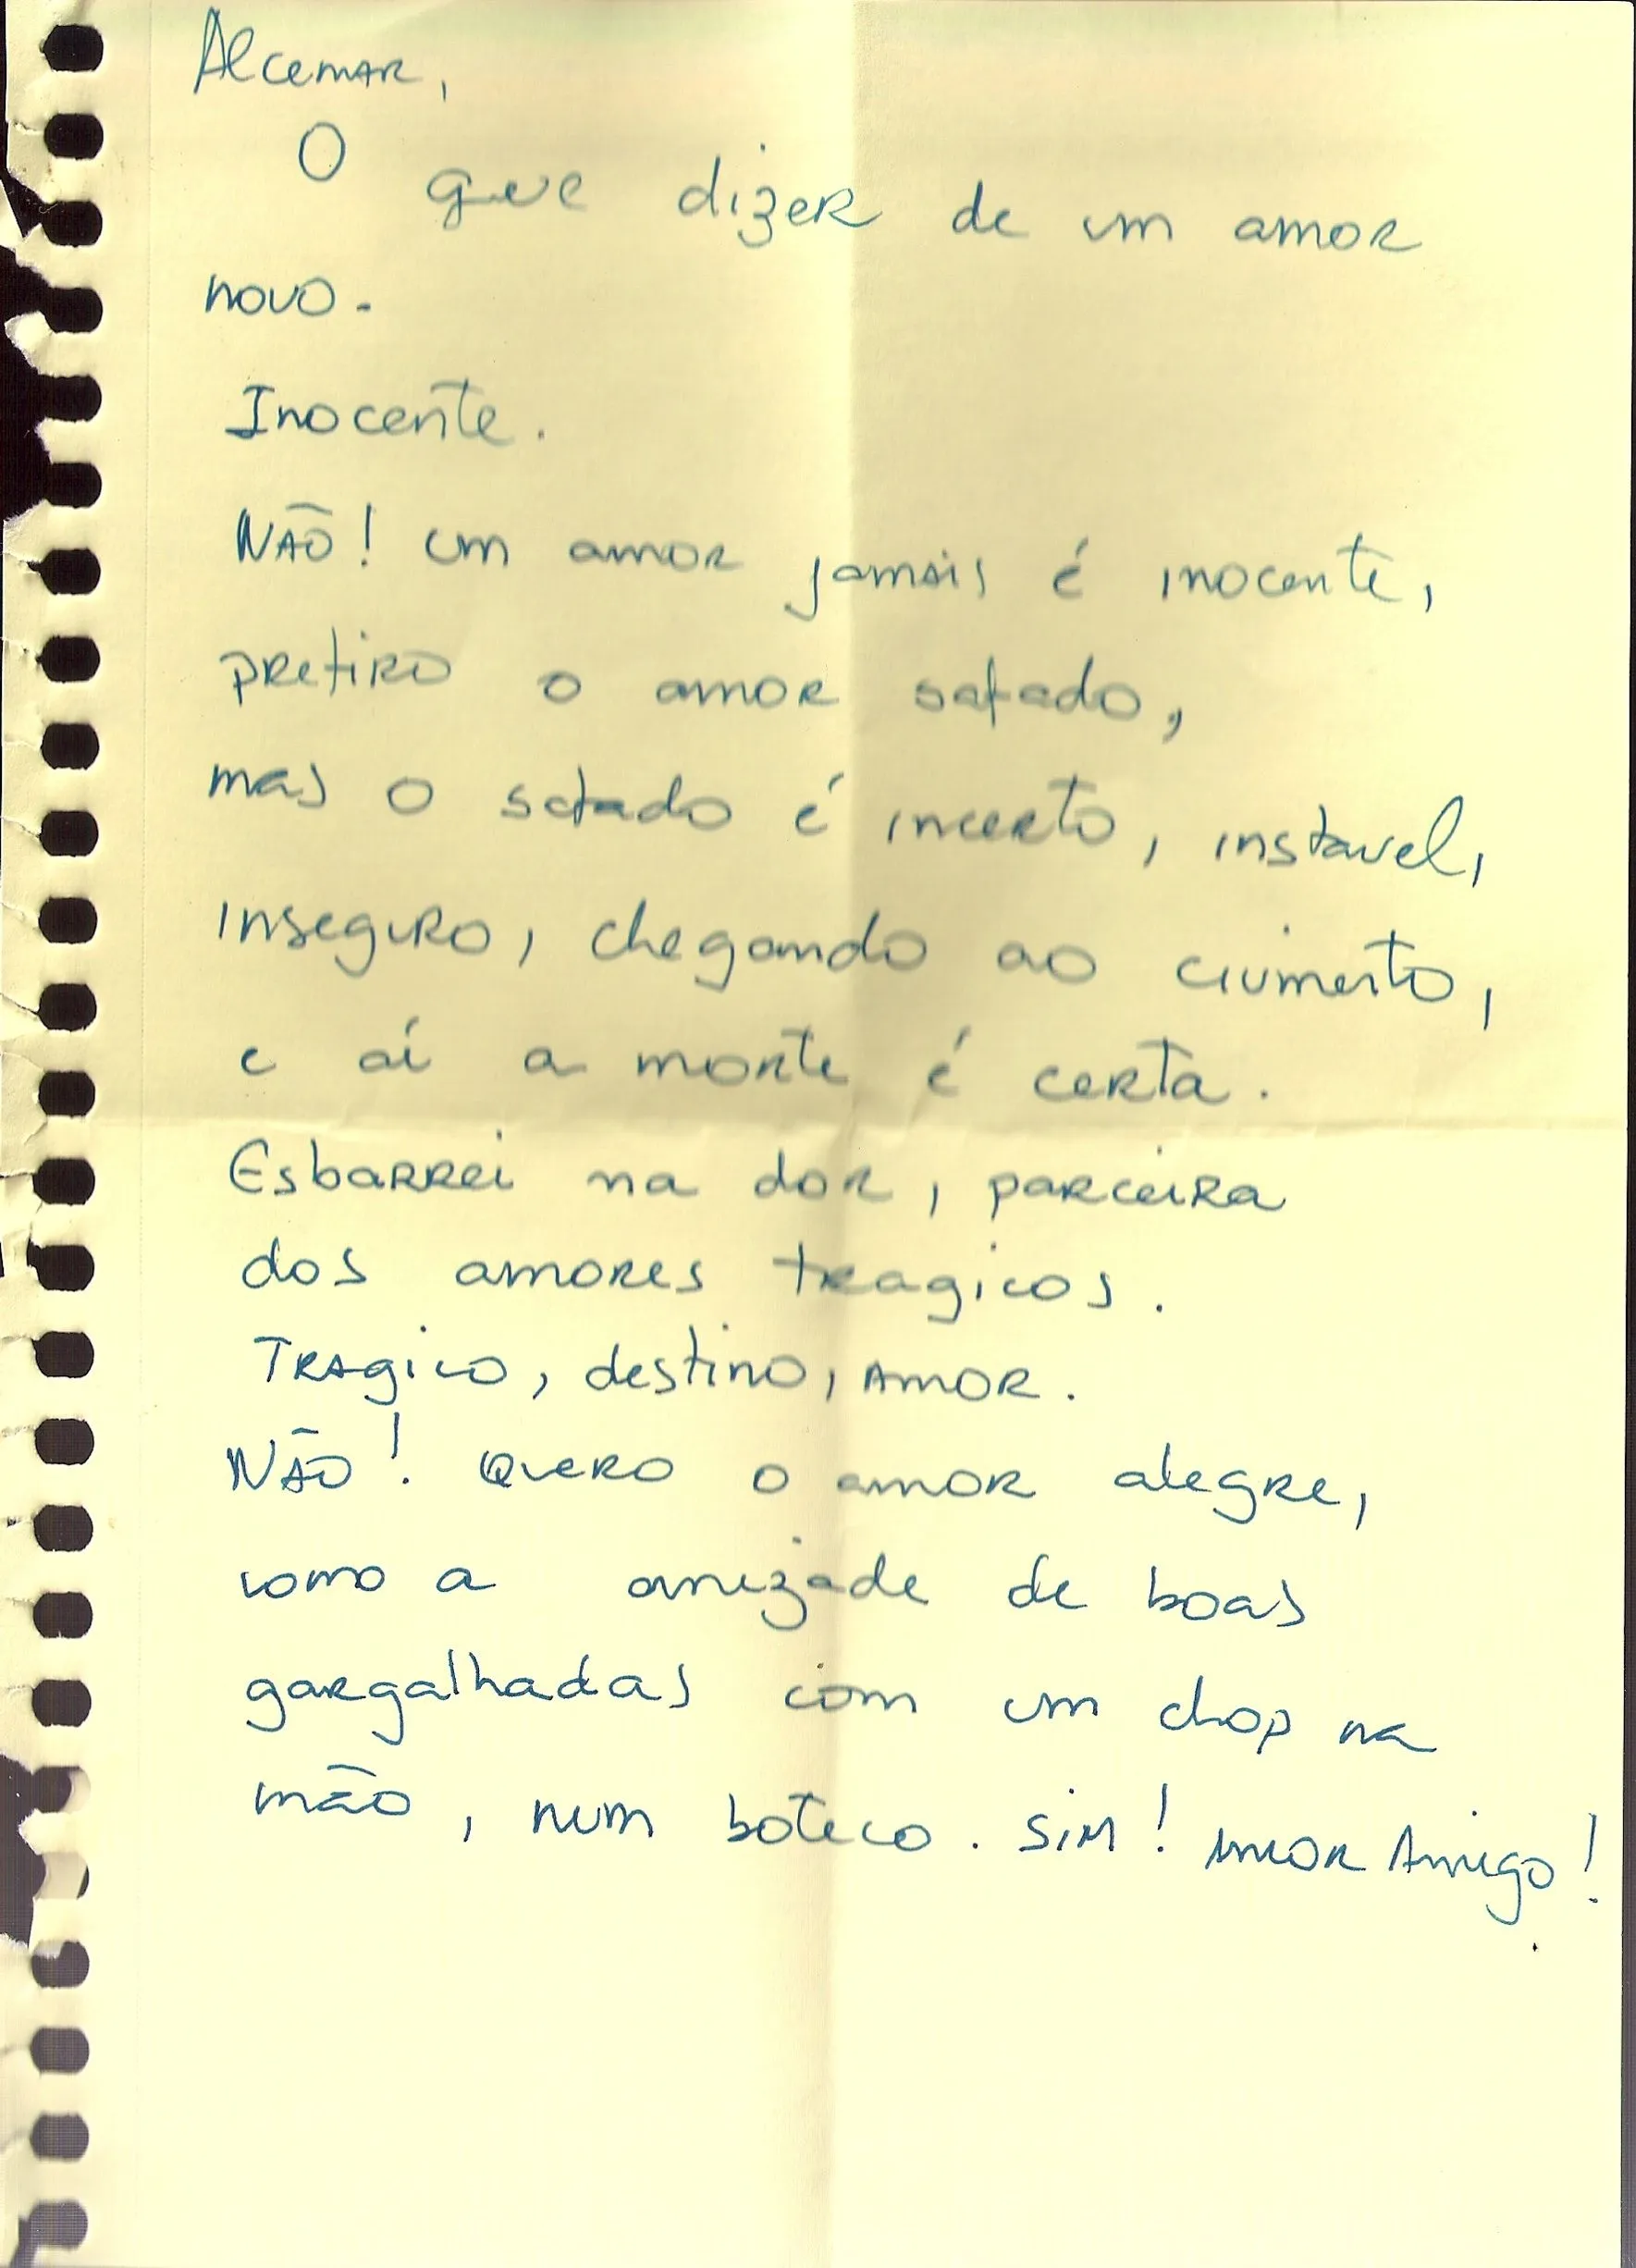 Alcemar,
O que dizer de um amor
novo.
Inocente.
NÃO! um amor jamais é inocente,
prefiro o amor safado,
mas o safado é incerto, instavel,
inseguro, chegando ao ciumento,
e aí a morte é certa.
Esbarrei na dor, parceira
dos amores tragicos.
Tragico, destino, amor.
NÃO! Quero o amor alegre,
como a amizade de boas
gargalhadas com um chop na
mão, num boteco. SIM! Amor Amigo!